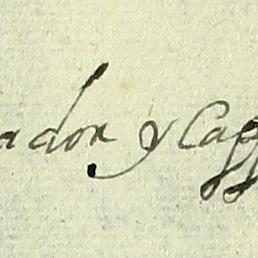 ador y Cap